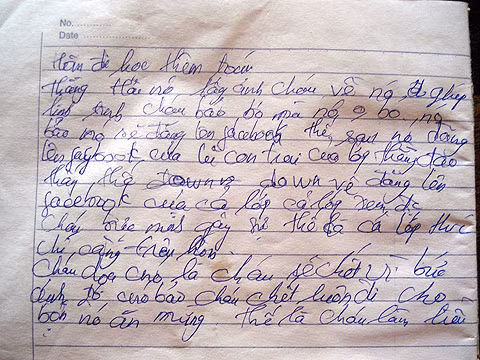 No.
Date
Hôm đi học thêm toán
thằng Hải nó lấy ảnh cháu về nó ghép
linh tinh cháu bảo bỏ mà nó o bỏ, nó
bảo nó sẽ đăng lên facebook thế, sau nó đăng
lên facebook của lũ con trai của lớp thằng đào
thấy thế down về đăng lên
facebook của cả lớp cả lớp xem đc
Cháu bức mình gây sự thế là cả lớp thấy
chị càng trêu hơn
Cháu dọa chọ là cháu sẽ chết vì bức
ảnh đó chọ bảo cháu chết luôn đi cho
bọn nó ăn mừng. Thế là cháu làm liều